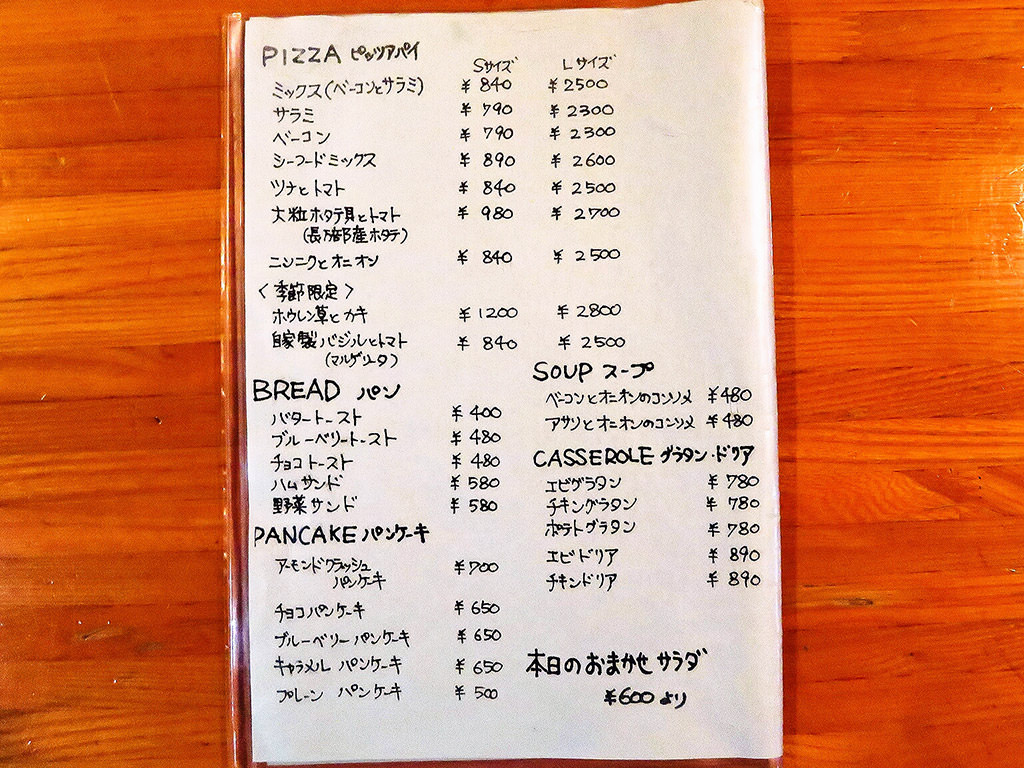 PIZZA ピッツアパイ
Sサイズ Lサイズ
ミックス(ベーコンとサラミ) ¥840 ¥2500
サラミ ¥790 ¥2300
ベーコン ¥790 ¥2300
シーフードミックス ¥890 ¥2600
ツナとトマト ¥840 ¥2500
大粒ホタテ貝とトマト ¥980 ¥2700
(長万部産ホタテ)
ニンニクとオニオン ¥840 ¥2500
〈季節限定〉
ホウレン草とカキ ¥1200 ¥2800
自家製バジルとトマト ¥840 ¥2500
(マルゲリータ)
BREAD パン
バタートースト ¥400
ブルーベリートースト ¥480
チョコトースト ¥480
ハムサンド ¥580
野菜サンド ¥580
PANCAKE パンケーキ
アーモンドクラッシュ
パンケーキ ¥700
チョコパンケーキ ¥650
ブルーベリーパンケーキ ¥650
キャラメル パンケーキ ¥650
プレーン パンケーキ ¥500
SOUP スープ
ベーコンとオニオンのコンソメ ¥480
アサリとオニオンのコンソメ ¥480
CASSEROLE グラタン・ドリア
エビグラタン ¥780
チキングラタン ¥780
ポテトグラタン ¥780
エビドリア ¥890
チキンドリア ¥890
本日のおまかせサラダ
¥600より